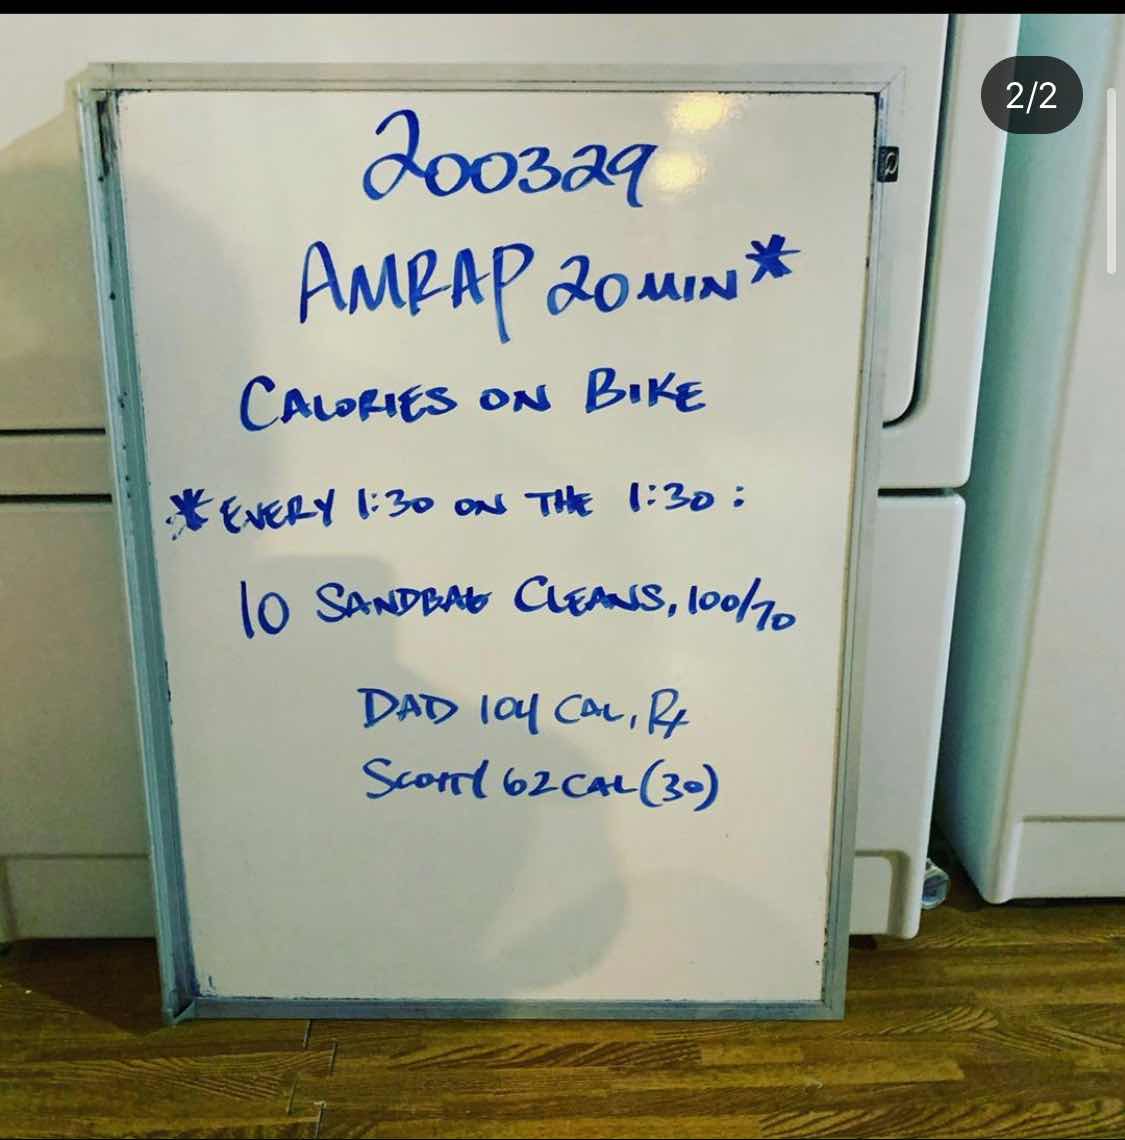 2/2
200329
AMRAP 20 MIN*
CALORIES ON BIKE
*EVERY 1:30 ON THE 1:30:
10 SANDBAG CLEANS, 100/70
DAD 104 CAL, Rx
SCOTTY 62 CAL (30)